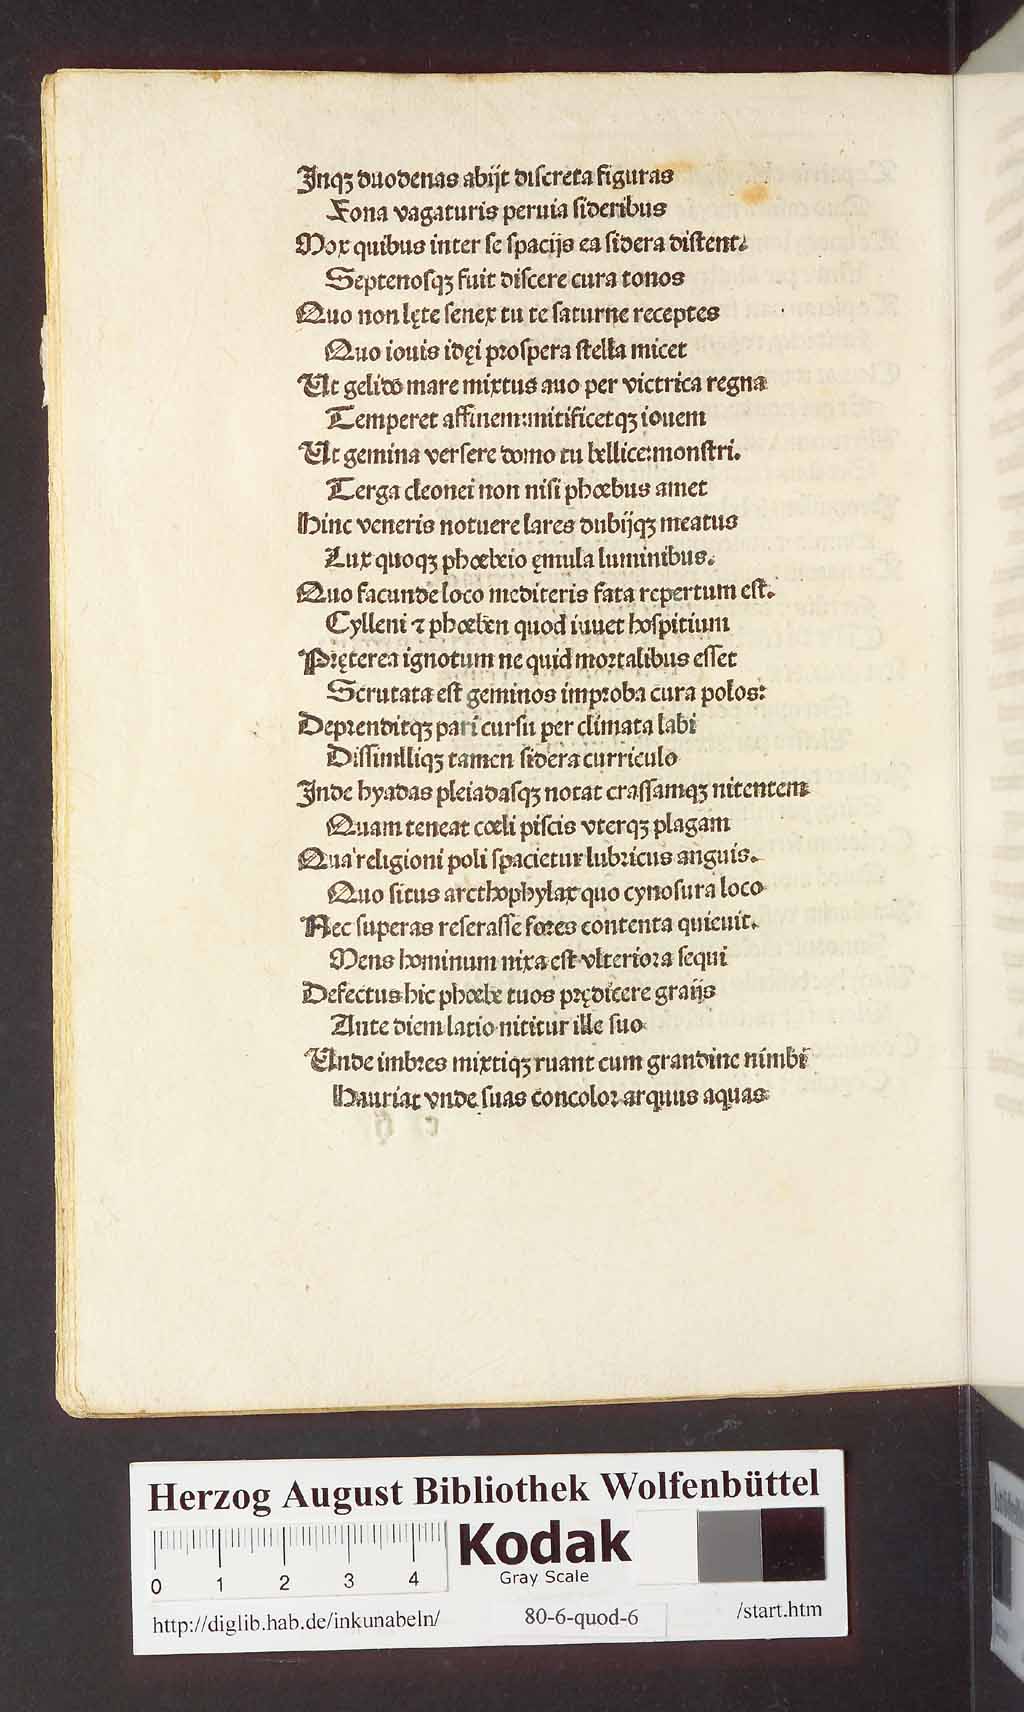 Jnqꝫ duodenas abijt diſcreta figuras
Fona vagaturis peruia ſideribus
Mox quibus inter ſe ſpacijs ea ſidera diſtent.
Septenoſqꝫ fuit diſcere cura tonos
Quo non lęte ſenex tu te ſaturne receptes
Quo iouis idęi proſpera ſtella micet
Ut gelido mare mixtus auo per victrica regna
Temperet affinem:mitificetqꝫ iouem
Ut gemina verſere domo tu bellice:monſtri.
Terga cleonei non niſi phœbus amet
Hinc veneris notuere lares dubijqꝫ meatus
Lux quoqꝫ phœbeio ęmula luminibus.
Quo facunde loco mediteris fata repertum eſt.
Cylleni ⁊ phœben quod iuuet hoſpitium
Pręterea ignotum ne quid mortalibus eſſet
Scrutata eſt geminos improba cura polos:
Deprenditqꝫ pari curſu per climata labi
Diſſimlliqꝫ tamen ſidera curriculo
Jnde hyadas pleiadaſqꝫ notat craſſamqꝫ nitentem
Quam teneat cœli piſcis vterqꝫ plagam
Qua religioni poli ſpacietur lubricus anguis.
Quo ſitus arcthophylax quo cynoſura loco
Nec ſuperas reſeraſſe fores contenta quieuit.
Mens hominum nixa eſt vlteriora ſequi
Defectus hic phœbe tuos prędicere graijs
Ante diem latio nititur ille ſuo
Unde imbres mixtiqꝫ ruant cum grandine nimbi
Hauriat vnde ſuas concolor arquus aquas
Herzog August Bibliothek Wolfenbüttel
Kodak
Gray Scale
0 1 2 3 4
http://diglib.hab.de/inkunabeln/ 80-6-quod-6 /start.htm